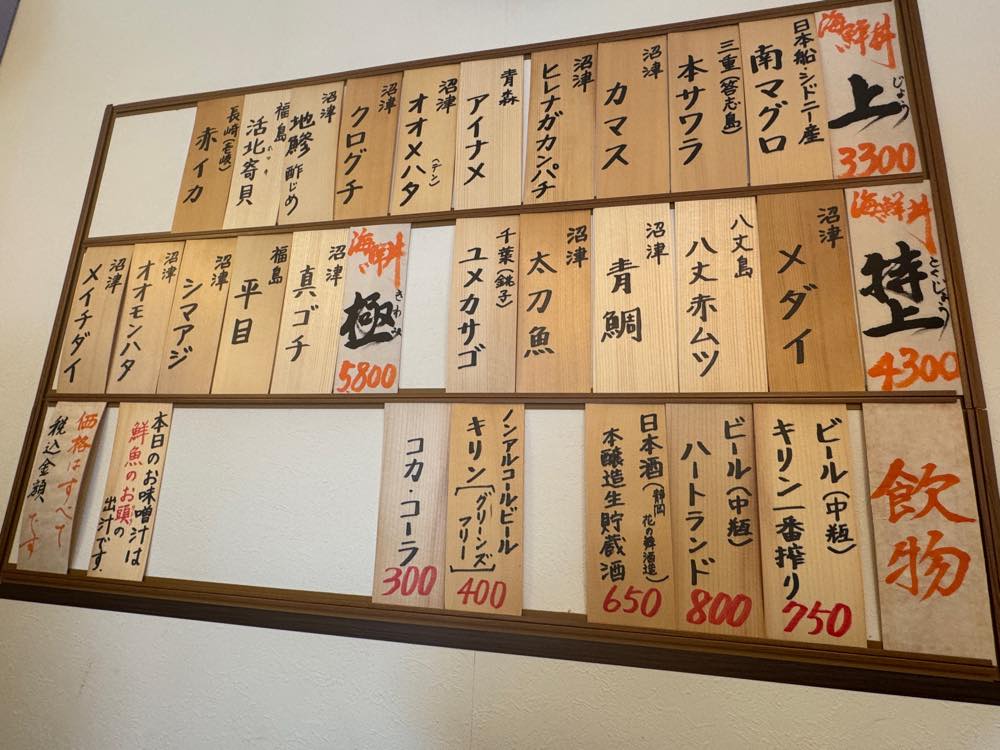 海鮮丼
上
じょう
3300
日本船・シドニー産
南マグロ
三重(答志島)
本サワラ
沼津
カマス
沼津
ヒレナガカンパチ
青森
アイナメ
沼津
オオメハタ
(デン)
沼津
クログチ
沼津
地鯵 酢じめ
福島
活北寄貝
ホッキ
長崎(壱岐)
赤イカ
海鮮丼
特上
とくじょう
4300
沼津
メダイ
八丈島
八丈赤ムツ
沼津
青鯛
沼津
太刀魚
千葉(銚子)
ユメカサゴ
海鮮丼
極
きわみ
5800
沼津
真ゴチ
福島
平目
沼津
シマアジ
沼津
オオモンハタ
沼津
メイチダイ
飲物
ビール(中瓶)
キリン一番搾り
750
ビール(中瓶)
ハートランド
800
日本酒(静岡 花の舞酒造)
本醸造生貯蔵酒
650
ノンアルコールビール
キリン[グリーンズフリー]
400
コカ・コーラ
300
本日のお味噌汁は
鮮魚のお頭の
出汁です。
価格はすべて
税込金額です